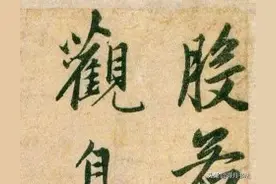 般若
觀自